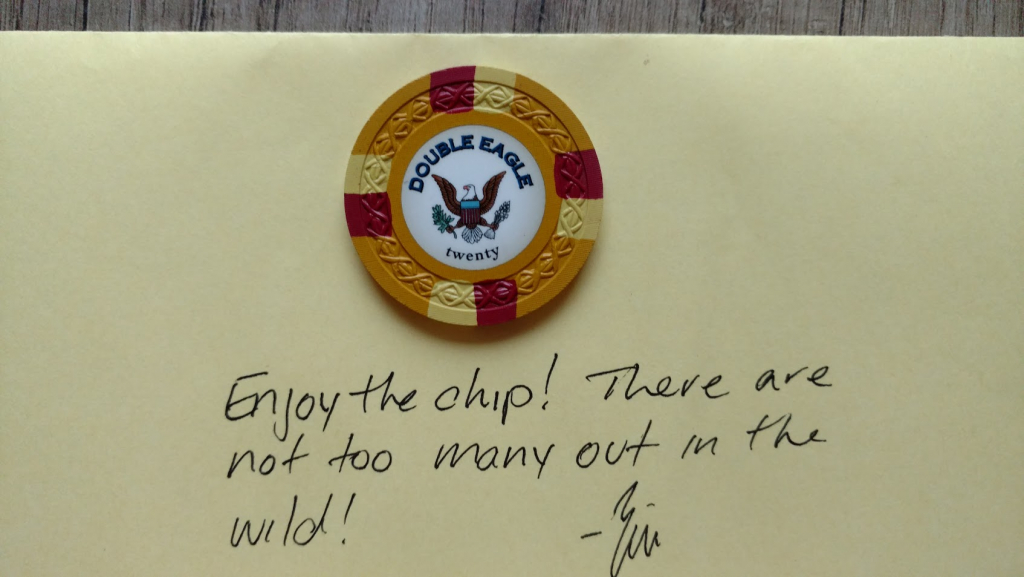 DOUBLE EAGLE
twenty
Enjoy the chip! There are
not too many out in the
wild!